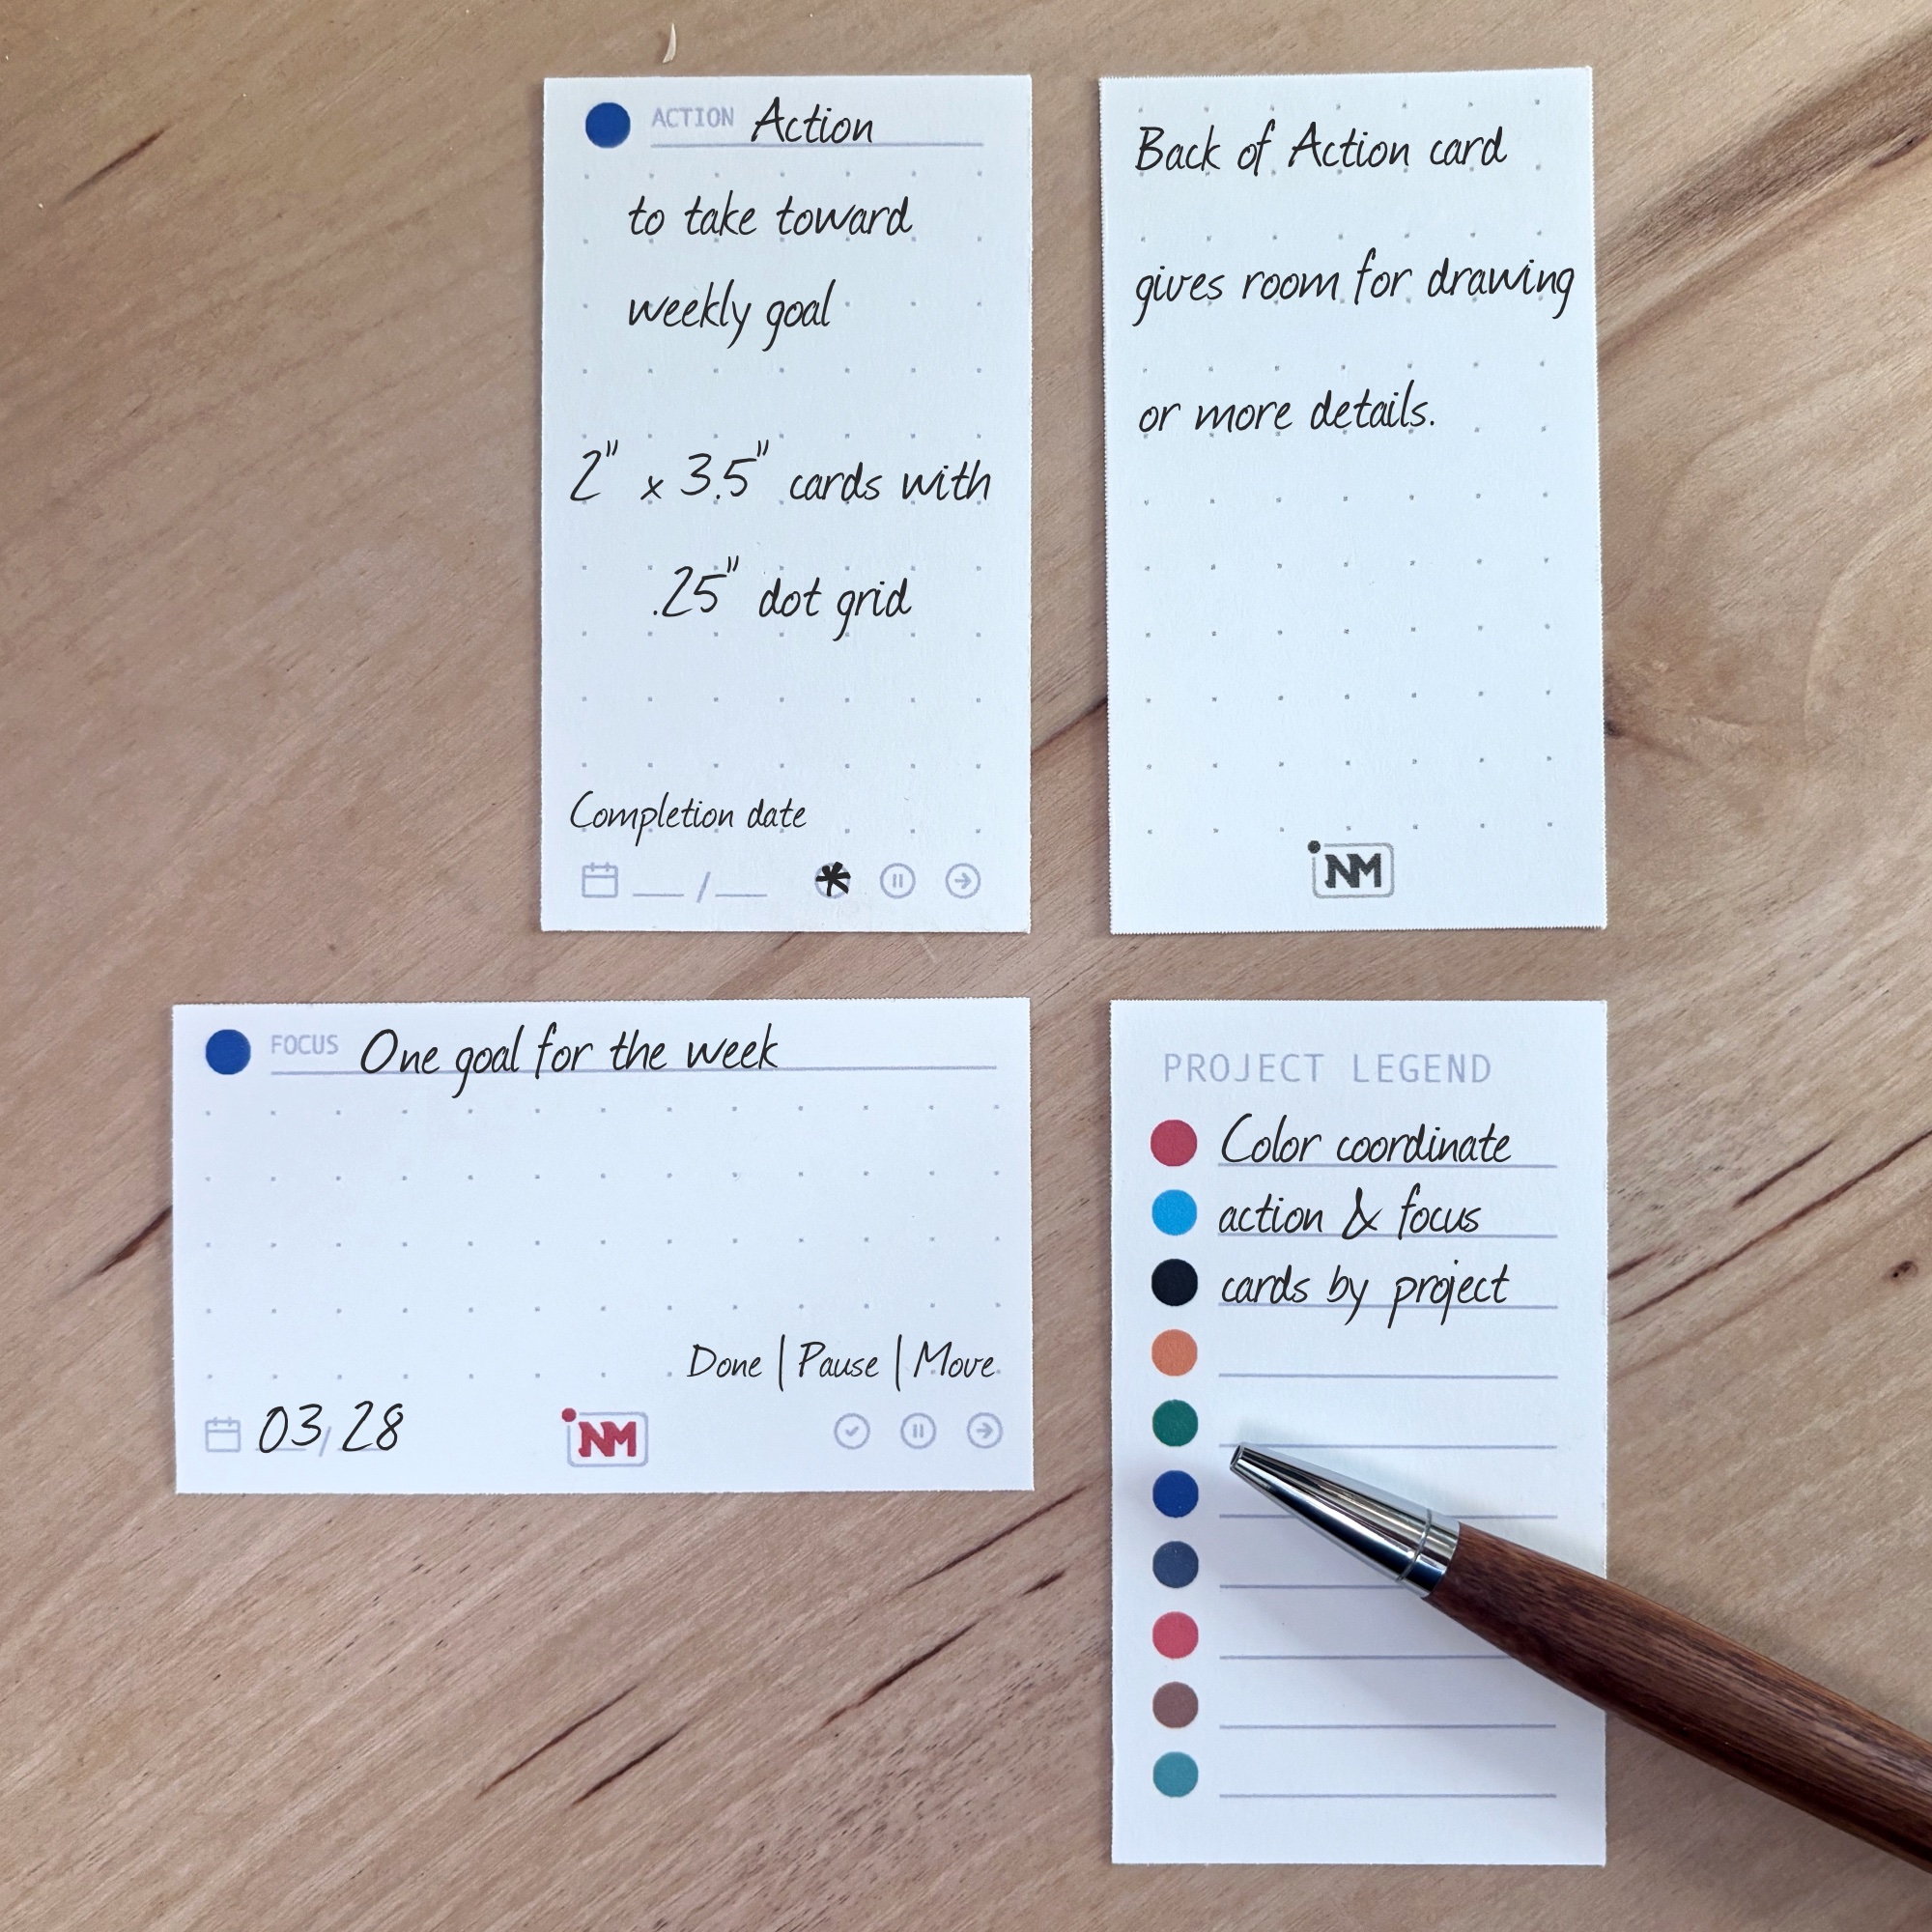 ACTION Action
to take toward
weekly goal
2" x 3.5" cards with
.25" dot grid
Completion date
/
Back of Action card
gives room for drawing
or more details.
NM
FOCUS One goal for the week
Done | Pause | Move
03/28
NM
PROJECT LEGEND
Color coordinate
action & focus
cards by project